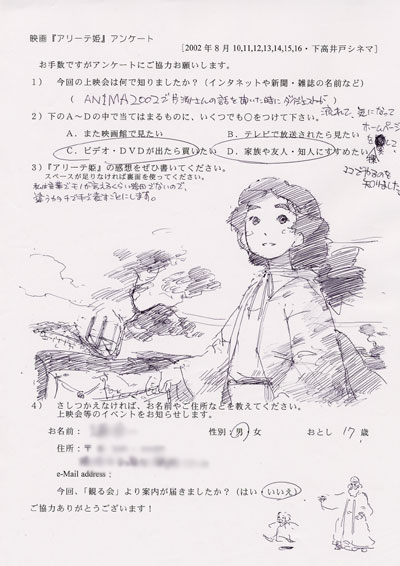 映画『アリーテ姫』アンケート
[2002年8月10,11,12,13,14,15,16・下高井戸シネマ]
お手数ですがアンケートにご協力お願いします。
1） 今回の上映会は何で知りましたか？（インターネットや新聞・雑誌の名前など）
（ ANIMA2002で片渕さんの話を聞いた時に
流れて、気になって
ホームページ
2）下のA～Dの中で当てはまるものに、いくつでも○をつけて下さい。
A．また映画館で見たい B．テレビで放送されたら見たい
C．ビデオ・DVDが出たら買いたい D．家族や友人・知人にすすめたい
知りました。
3）『アリーテ姫』の感想をぜひ書いてください。
スペースが足りなければ裏面を使ってください。
私は言葉でモノが言えるくらい
4） さしつかえなければ、お名前やご住所などを教えてください。
上映会等のイベントをお知らせします。
お名前： 性別：男・女 おとし 17 歳
住所：〒
e-Mail address：
今回、「観る会」より案内が届きましたか？（はい・いいえ）
ご協力ありがとうございます！